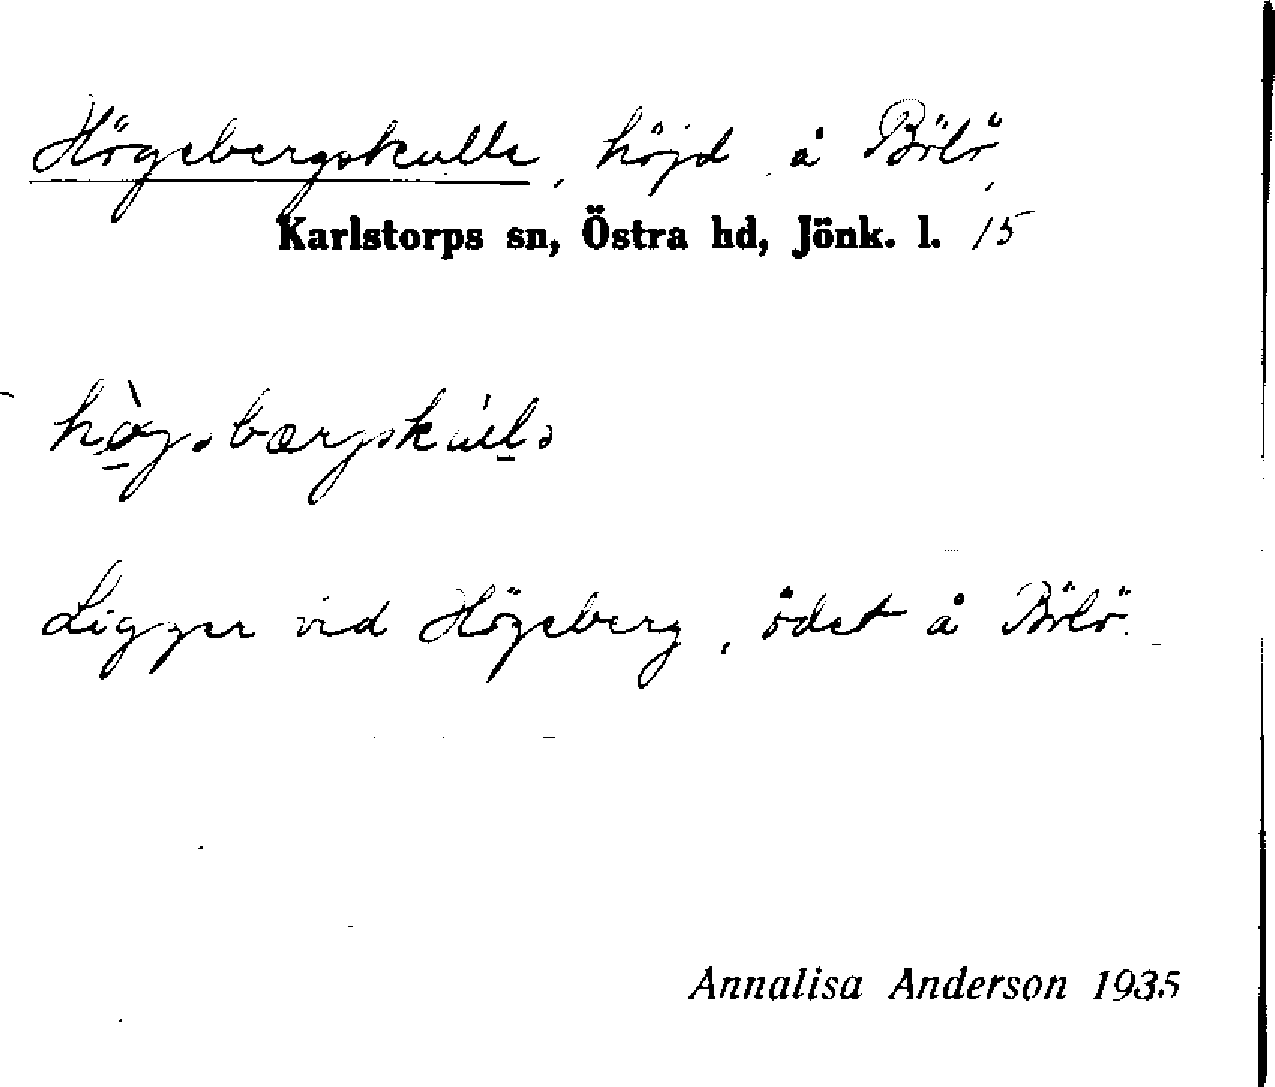 Högebergskulle, höjd å Bölö,
Karlstorps sn, Östra hd, Jönk. l. 15
Ligger vid Högeberg, ödet å Bölö.
Annalisa Anderson 1935